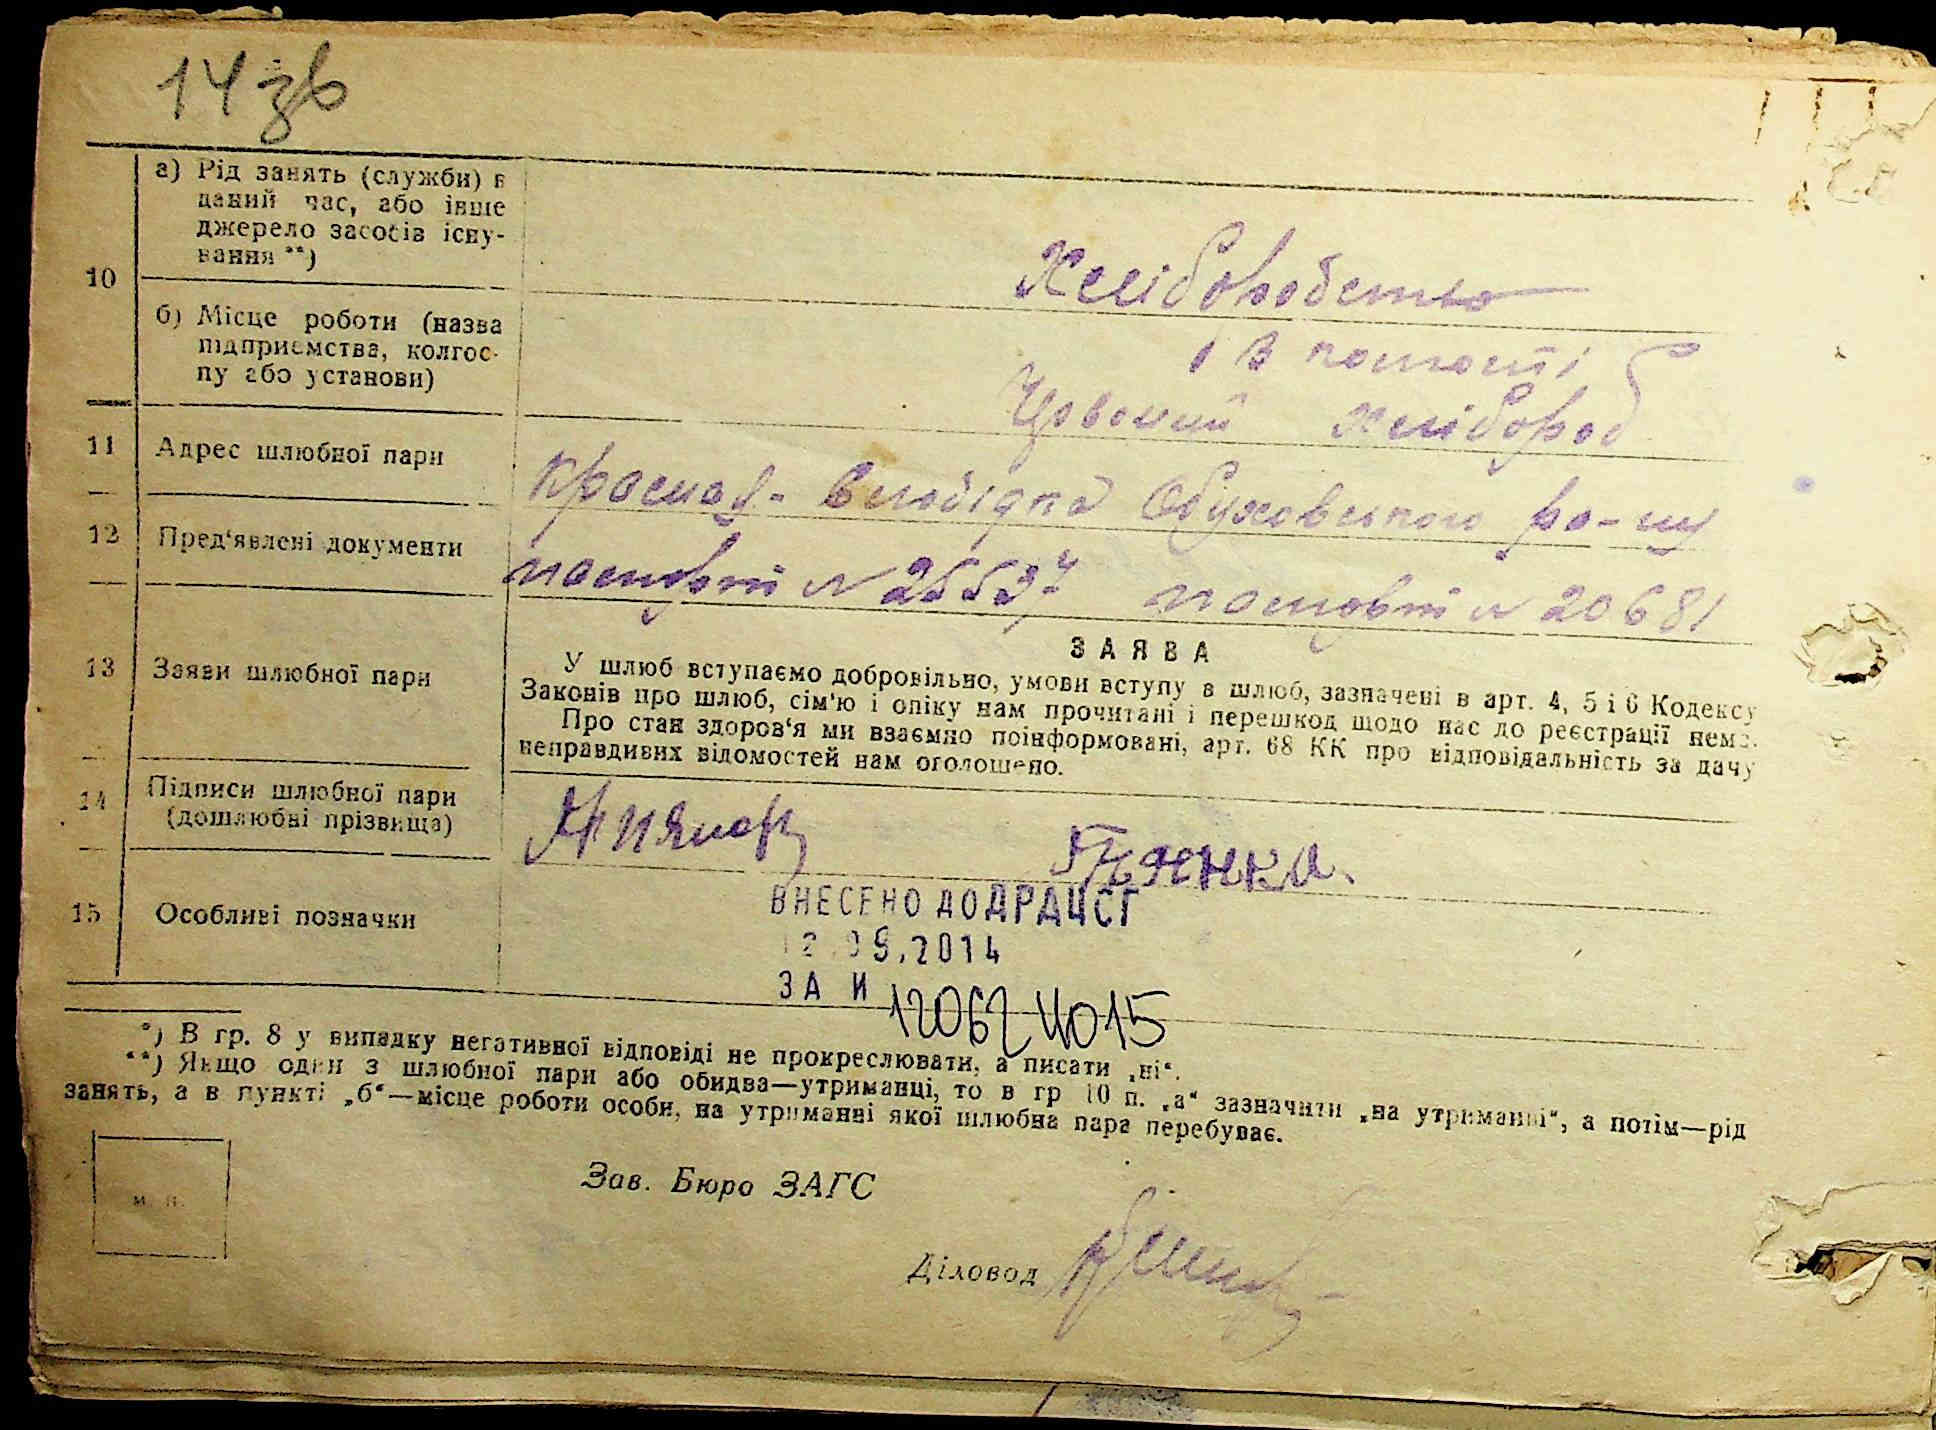 14 зв
10
а) Рід занять (служби) в
даний час, або інше
джерело засобів існу-
вання **)
Хліборобство
б) Місце роботи (назва
підприємства, колгос-
пу або установи)
в
Червоний Хлібороб
11 Адрес шлюбної пари
Красная-Слобідка Обухівського ра-ну
12 Пред'явлені документи
паспорт № 25537 паспорт № 20681
13 Заяви шлюбної пари
ЗАЯВА
У шлюб вступаємо добровільно, умови вступу в шлюб, зазначені в арт. 4, 5 і 6 Кодексу
Законів про шлюб, сім'ю і опіку нам прочитані і перешкод щодо нас до реєстрації нема.
Про стан здоров'я ми взаємно поінформовані, арт. 68 КК про відповідальність за дачу
неправдивих відомостей нам оголошено.
14 Підписи шлюбної пари
(дошлюбні прізвища)
15 Особливі позначки
ВНЕСЕНО ДО ДРАЦСГ
12.09.2014
ЗА И 12062 4015
*) В гр. 8 у випадку негативної відповіді не прокреслювати, а писати „ні“.
**) Якщо один з шлюбної пари або обидва—утриманці, то в гр 10 п. „а“ зазначити „на утриманні“, а потім—рід
занять, а в пункті „б“—місце роботи особи, на утриманні якої шлюбна пара перебуває.
м. п.
Зав. Бюро ЗАГС
Діловод